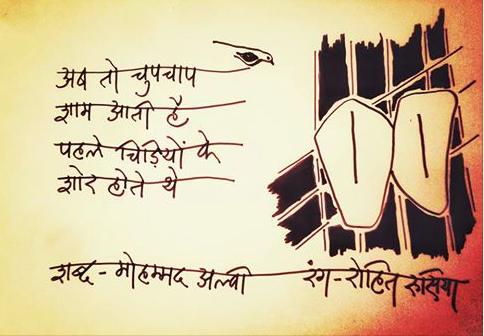 अब तो चुपचाप
शाम आती है
पहले चिड़ियों के
शोर होते थे
शब्द - मोहम्मद अल्वी रंग - रोहित रूसिया